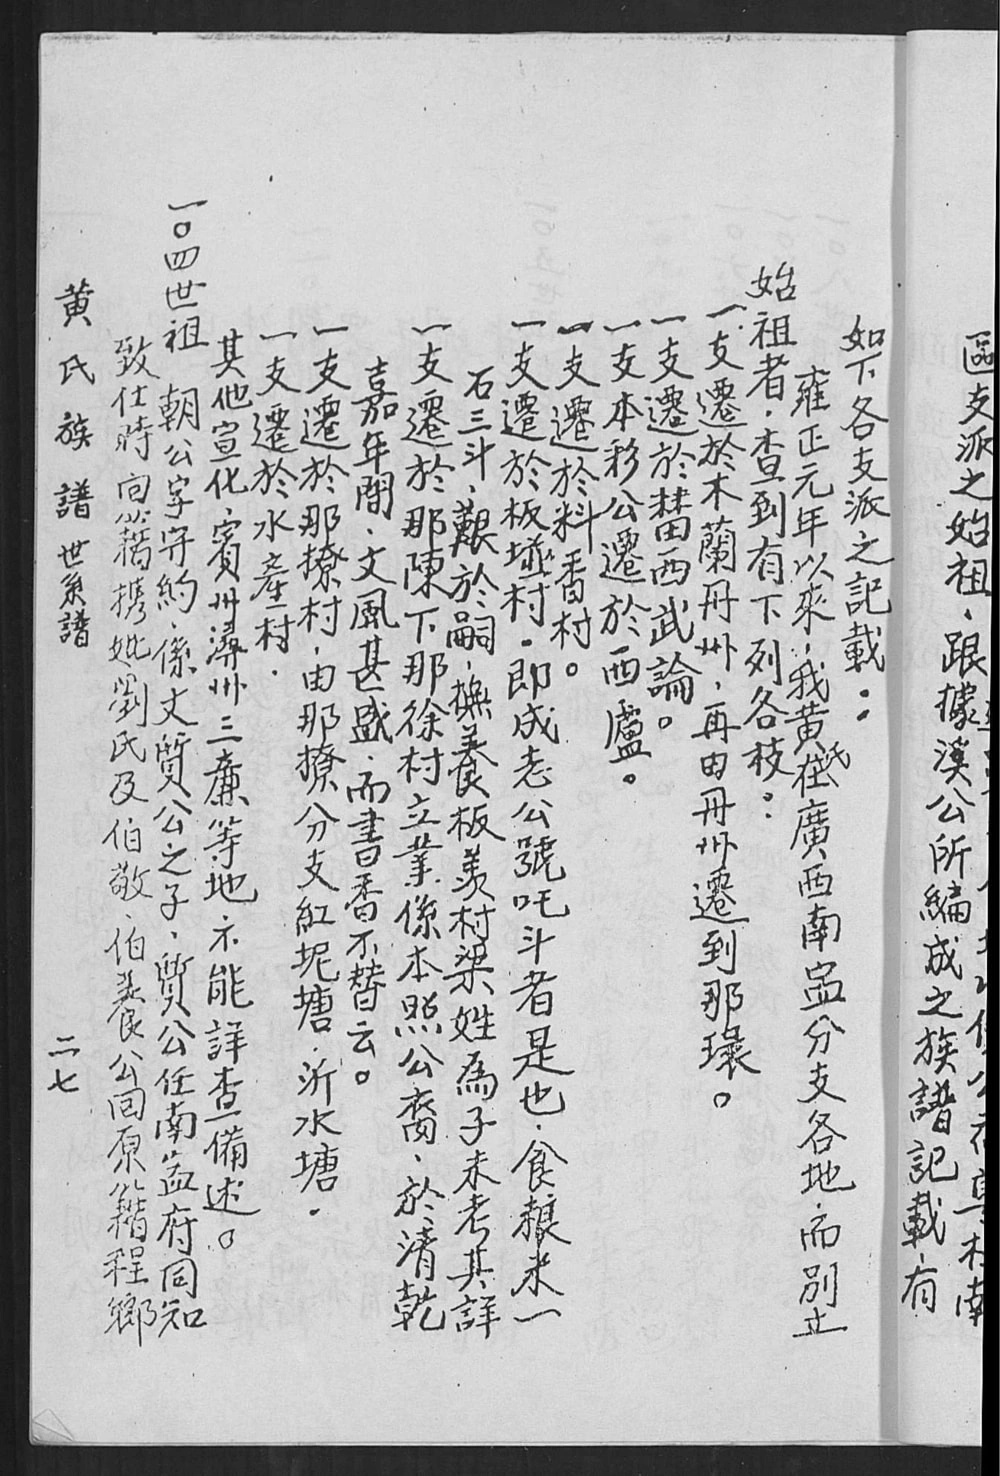 區支派之始祖、跟據溪公所編成之族譜記載、有
如下各支派之記載：
雍正元年以來、我黃氏在廣西南盆分支各地、而別立
始祖者、查到有下列各枝：
一支遷於木蘭冊州、再由冊州遷到那環。
一支遷於西武論。
一支本彩公遷於西廬。
一支遷於料香村。
一支遷於板墟村。即成志公號吒斗者是也、食糧米一
石三斗、艱於嗣、撫養板羨村梁姓為子未考其詳
一支遷於那陳下那徐村立業係本照公裔、於清乾
嘉年間、文風甚盛、而書香不替云。
一支遷於那撩村、由那撩分支紅坭塘、沂水塘．
一支遷於水產村．
其他宣化、賓州潯州三廉等地不能詳查備述。
一○四世祖 朝公字守約、係文質公之子、質公任南盆府同知
致仕時回籍携妣劉氏及伯敬、伯養公回原籍程鄉
黃氏族譜世系譜 二七